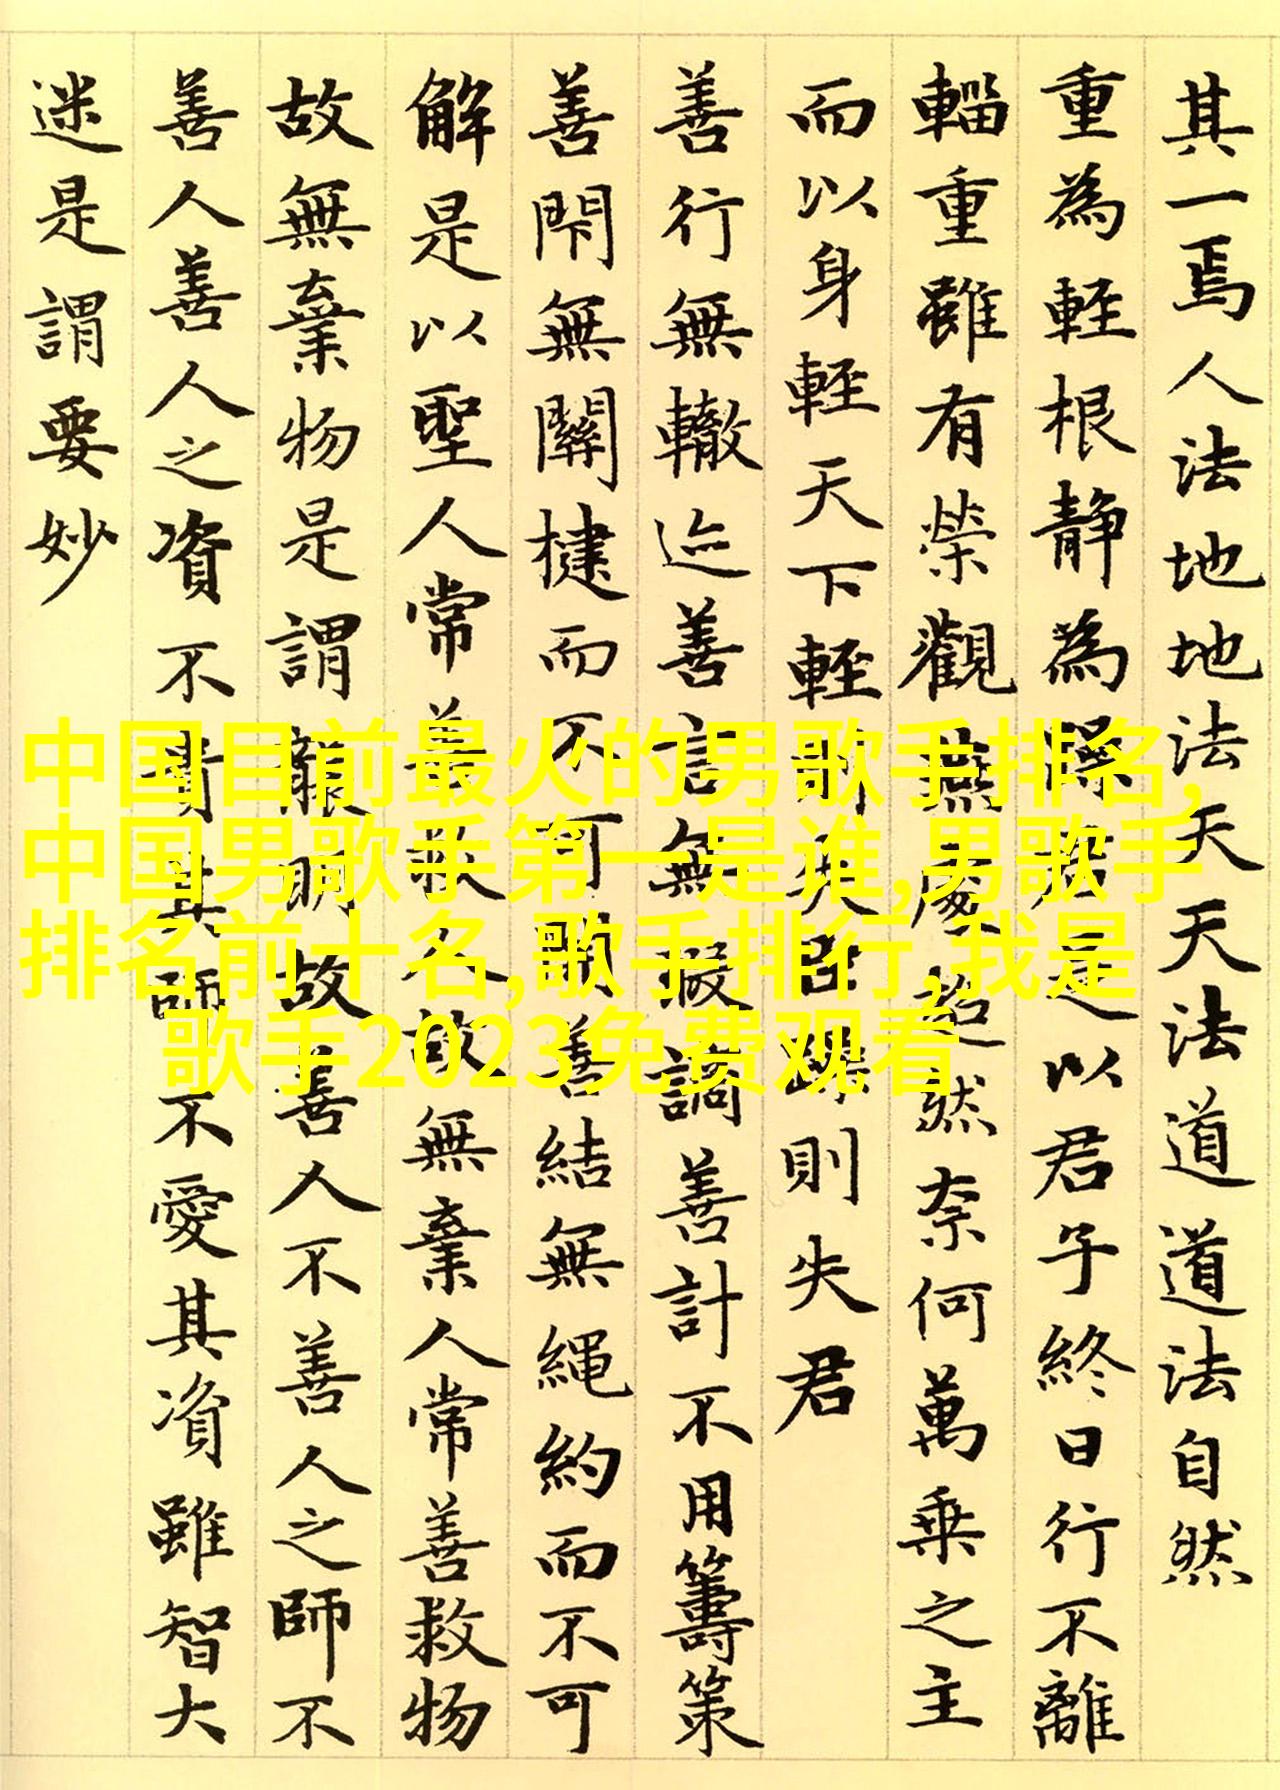 其一焉人法地地法天天法道道法自然
重為輕根静為躁君是以君子終日行不離
輜重雖有榮觀燕處超然奈何萬乘之主
而以身輕天下輕則失臣躁則失君
善行無轍迹善言無瑕讁善計不用籌策
善閇無關楗而不可開善結無繩約而不可
解是以聖人常善救人故無棄人常善救物
故無棄物是謂襲明故善人不善人之師不
善人善人之資不貴其師不愛其資雖智大
迷是謂要妙
中国目前最火的男歌手排名,
中国男歌手第一是谁,男歌手
排名前十名,歌手排行,我是
歌手2023免费观看